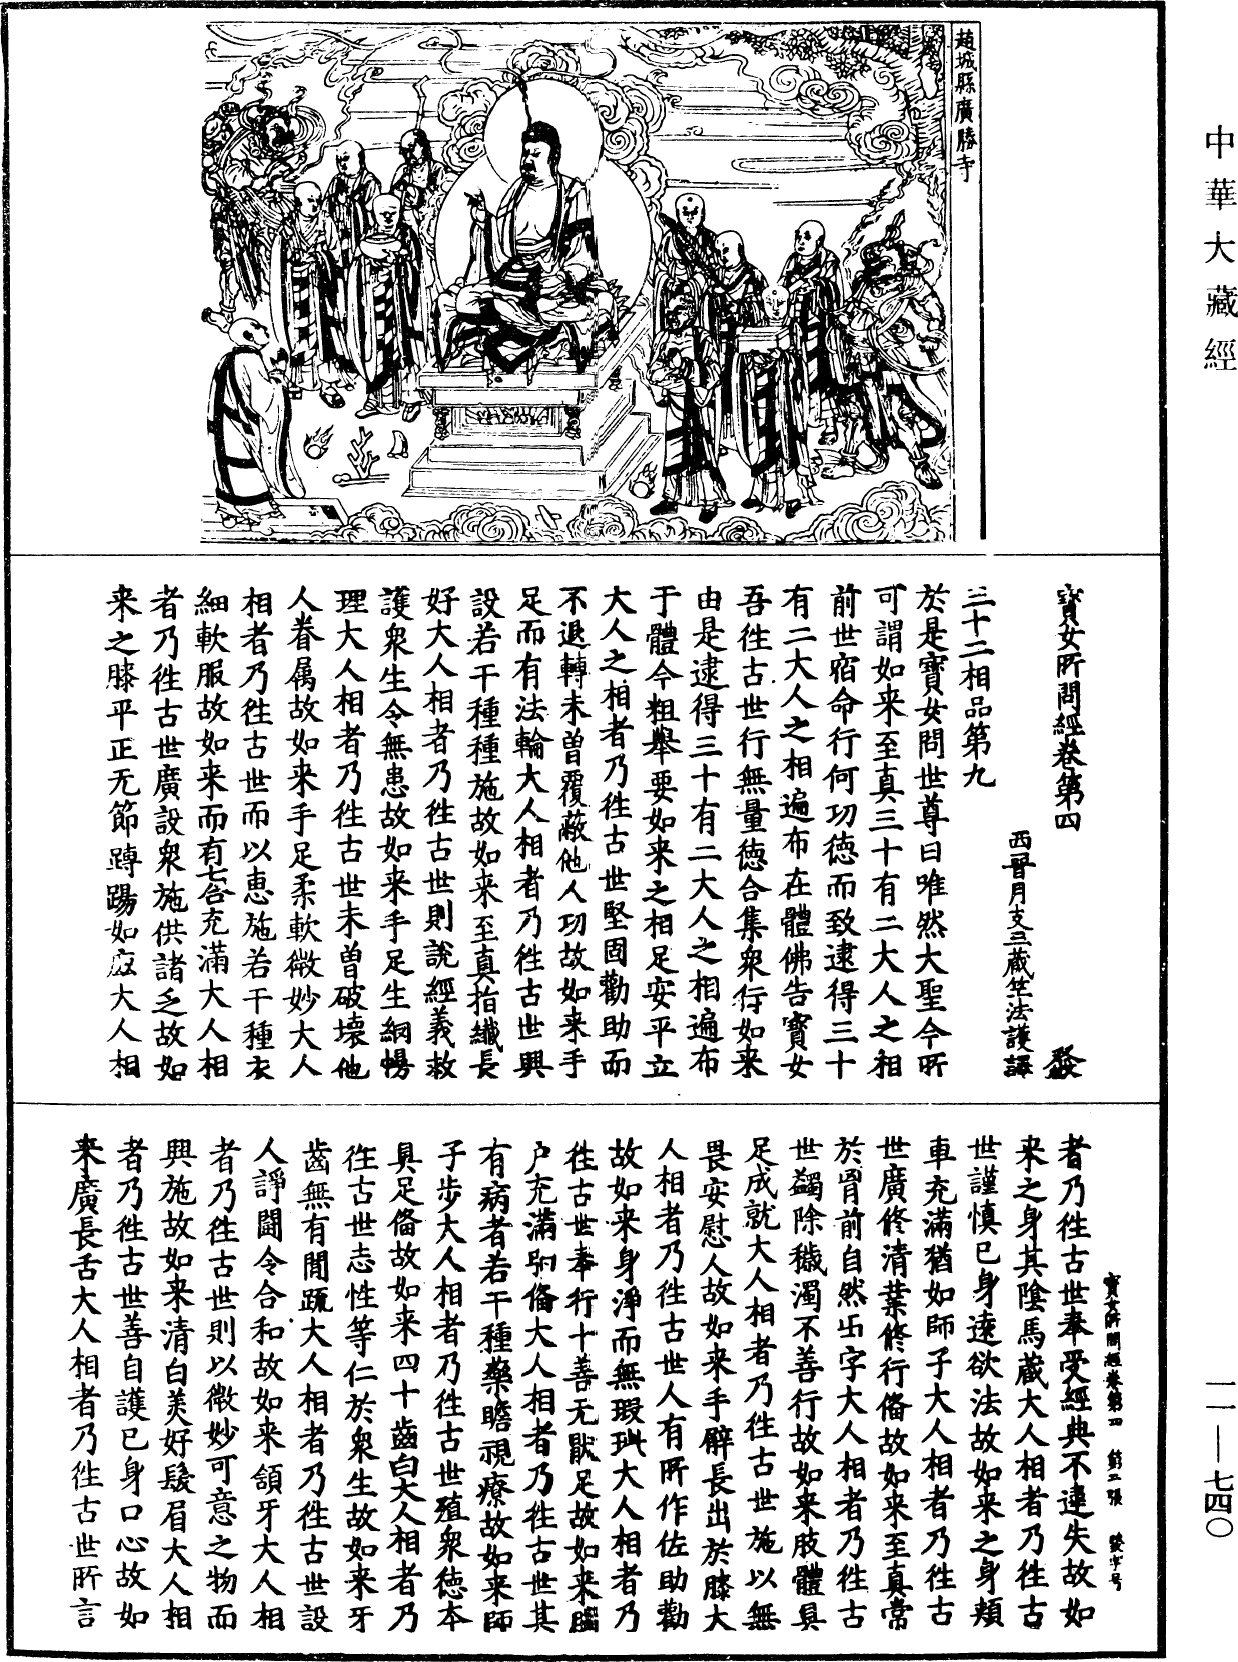 中華大藏經
趙城縣廣勝寺
寶女所問經卷第四
發
西晉月支三藏竺法護譯
三十二相品第九
於是寶女問世尊曰唯然大聖今所
可謂如来至真三十有二大人之相
前世宿命行何功德而致逮得三十
有二大人之相遍布在體佛告寶女
吾往古世行無量德合集衆行如来
由是逮得三十有二大人之相遍布
于體今粗舉要如来之相足安平立
大人之相者乃往古世堅固勸助而
不退轉未曽覆蔽他人功故如来手
足而有法輪大人相者乃往古世興
設若干種種施故如来至真指纖長
好大人相者乃往古世則說經義救
護衆生令無患故如来手足生網幔
理大人相者乃往古世未曽破壞他
人眷屬故如来手足柔軟微妙大人
相者乃往古世而以惠施若干種衣
細軟服故如来而有七合充滿大人相
者乃往古世廣設衆施供諸乏故如
来之膝平正无節踹腸如鹿大人相
寶女所問經卷第四 第二張 發字号
者乃往古世奉受經典不違失故如
来之身其陰馬藏大人相者乃往古
世謹慎已身遠欲法故如来之身頰
車充滿猶如師子大人相者乃往古
世廣修清業修行俻故如来至真常
於胷前自然卐字大人相者乃往古
世蠲除穢濁不善行故如来肢體具
足成就大人相者乃往古世施以無
畏安慰人故如来手臂長出於膝大
人相者乃往古世人有所作佐助勸
故如来身淨而無瑕玼大人相者乃
往古世奉行十善无猒足故如来腦
户充滿弘俻大人相者乃往古世其
有病者若干種藥瞻視療故如来師
子步大人相者乃往古世殖衆德本
具足俻故如来四十齒白大人相者乃
往古世志性等仁於衆生故如来牙
齒無有間踈大人相者乃往古世設
人諍鬪令合和故如来頷牙大人相
者乃往古世則以微妙可意之物而
興施故如来清白美好髮眉大人相
者乃往古世善自護已身口心故如
来廣長舌大人相者乃往古世所言
一一—七四〇